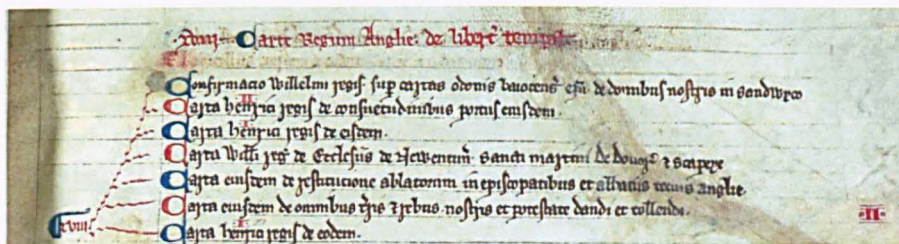 Carte Regum Anglie de libert temp
Confirmacio Willelmi regis sup cartas odonis baiocens epi de domibus nostris in sandwyco
Carta henrici regis de consuetudinibus portus eiusdem.
Carta henrici regis de eisdem.
Carta Willi reg de Ecclesiis de Newentun sancti martini de douor & scapeye
Carta eiusdem de restitucione ablatorum in episcopatibus et abbatiis tocius anglie.
Carta eiusdem de omnibus tris & rebus nostris et potestate dandi et tollendi.
xviii
Carta henrici regis de eodem.
II